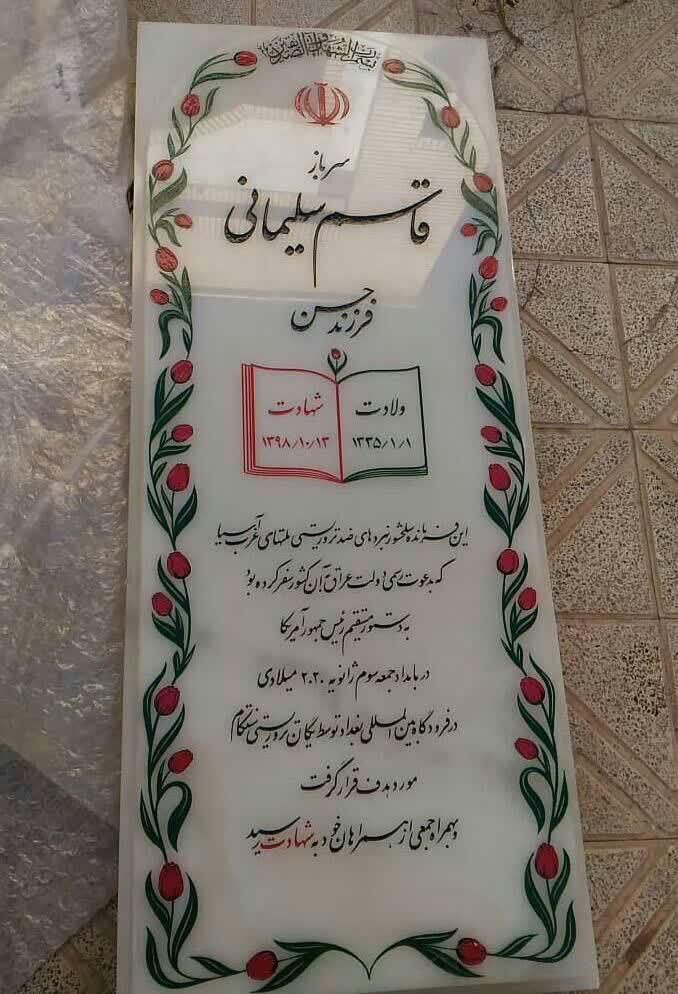 بسم رب الشهداء و الصدیقین
سرباز
قاسم سلیمانی
فرزند حسن
ولادت
۱۳۳۵/۱/۱
شهادت
۱۳۹۸/۱۰/۱۳
این فرمانده سلحشور نبردهای ضد تروریستی ملتهای غرب آسیا
که به دعوت رسمی دولت عراق به آن کشور سفر کرده بود
به دستور مستقیم رئیس جمهور آمریکا
در بامداد جمعه سوم ژانویه ۲۰۲۰ میلادی
در فرودگاه بین المللی بغداد توسط یگان تروریستی سنتکام
مورد هدف قرار گرفت
و بهمراه جمعی از همراهان خود به شهادت رسید